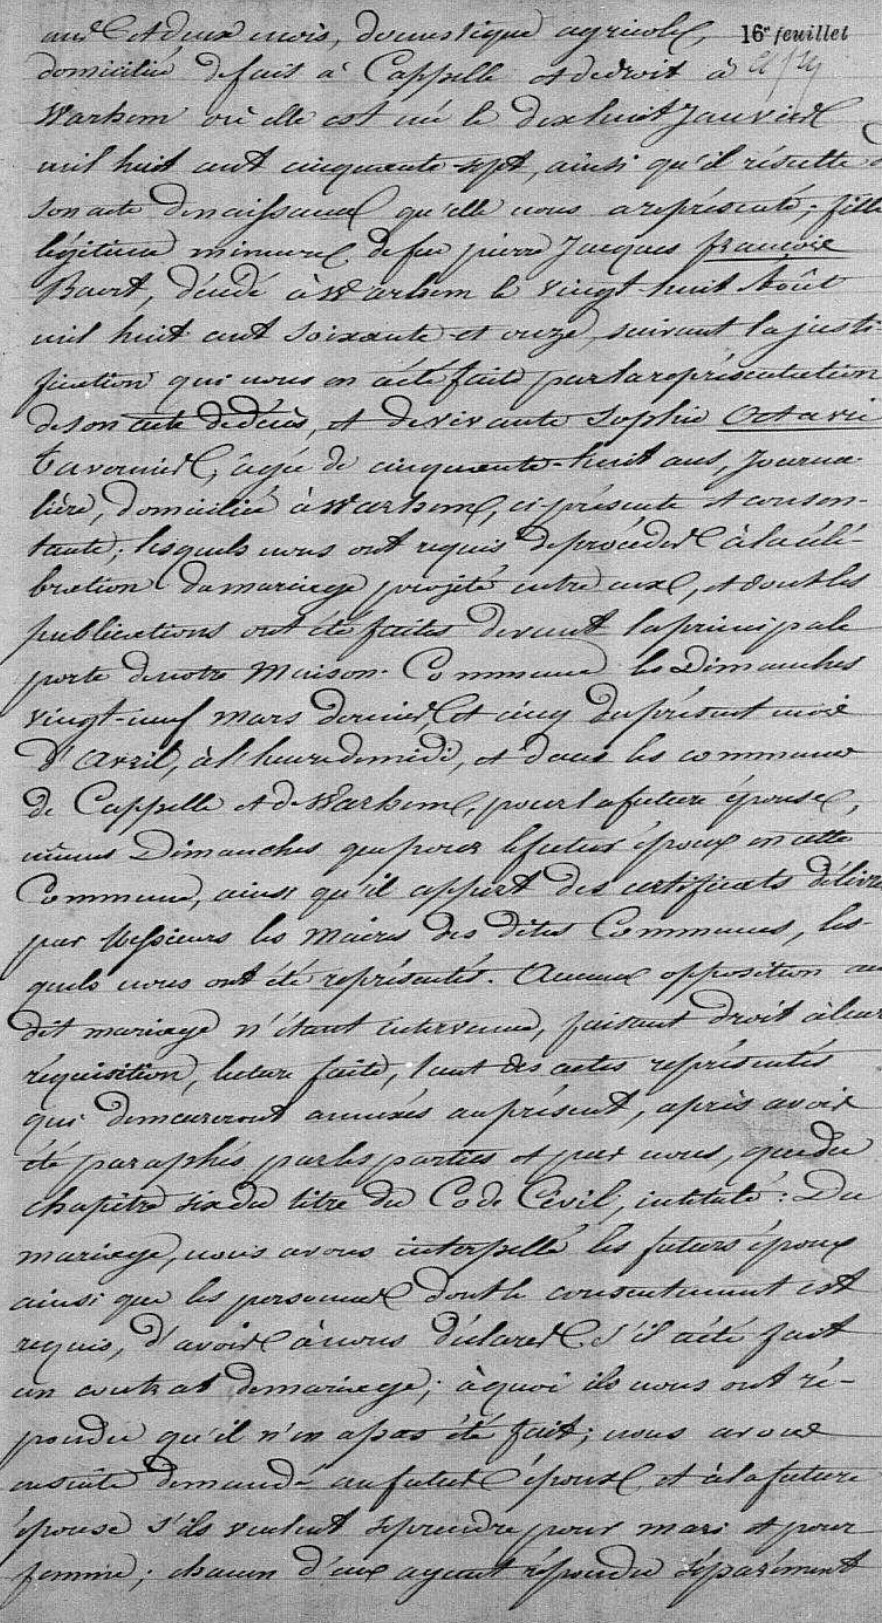 ans et deux mois, domestique agricole, 16e feuillet
domiciliée de fait à Cappelle et de droit à
Warhem où elle est née le dix huit Janvier
mil huit cent cinquante-sept, ainsi qu'il résulte d
son acte de naissance qu'elle nous a représenté; fille
légitime mineure de feu pierre Jacques françois
Baert, décédé à Warhem le vingt-huit Août
mil huit cent soixante-et onze, suivant la justi-
fication qui nous en a été faite par la représentation
de son acte de décès, et de vivante Sophie Octavie
Tavernier, âgée de cinquante-huit ans, Journa-
lière, domiciliée à Warhem, ci-présente et consen-
tante; lesquels nous ont requis de procéder à la célé-
bration du mariage projeté entre eux, et dont les
publications ont été faites devant la principale
porte de notre Maison-Commune les Dimanches
vingt-neuf mars dernier, et cinq du présent mois
d'Avril, à l'heure de midi, et dans les communes
de Cappelle et de Warhem, pour la future épouse,
mêmes Dimanches que pour le futur époux en cette
Commune, ainsi qu'il appert des certificats délivrés
par Messieurs les Maires des dites Communes, les-
quels nous ont été représentés. Aucune opposition au
dit mariage n'étant intervenue, faisant droit à leur
réquisition, lecture faite, tant des actes représentés
qui demeureront annexés au présent, après avoir
été paraphés par les parties et par nous, que du
chapitre six du titre du Code Civil, intitulé: Du
mariage, nous avons interpellé les futurs époux
ainsi que les personnes dont le consentement est
requis, d'avoir à nous déclarer s'il a été fait
un contrat de mariage; à quoi ils nous ont ré-
pondu qu'il n'en a pas été fait; nous avons
ensuite demandé au futur époux et à la future
épouse s'ils veulent se prendre pour mari et pour
femme; chacun d'eux ayant répondu séparément